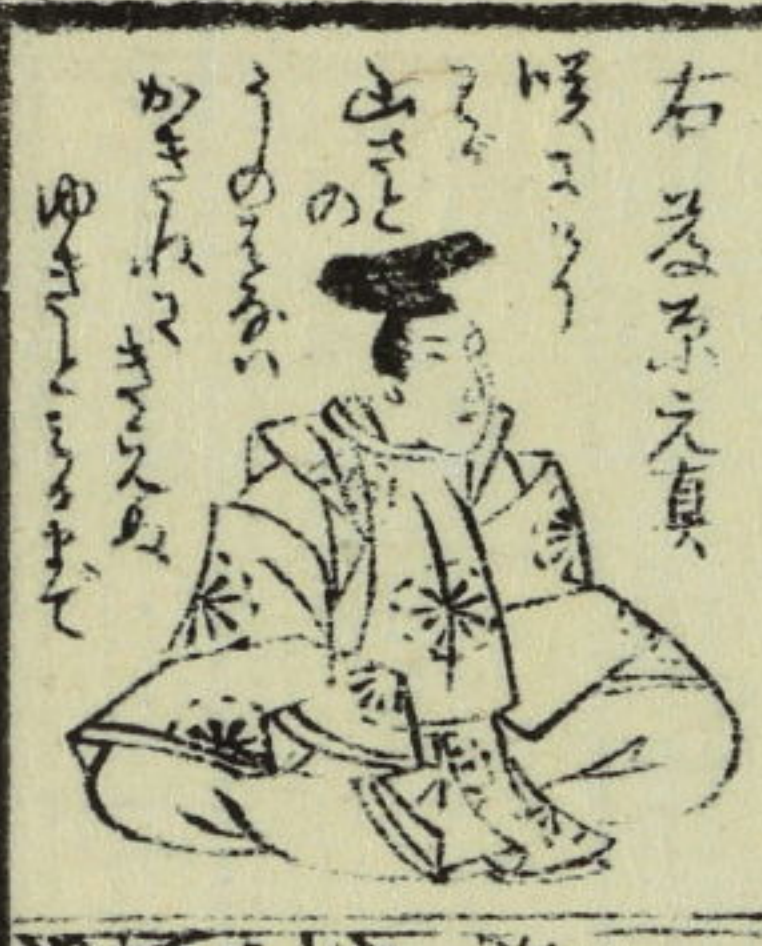 右 藤原元真
咲にけり
わが
山さと
の
うのはなハ
かきねに
きえぬ
ゆきとみるまで